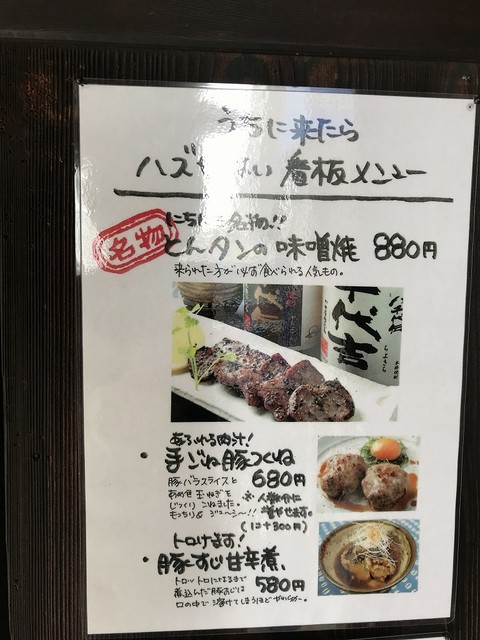 うちに来たら
ハズせない看板メニュー
名物
にちにち名物!!
とんタンの味噌焼 880円
来られた方が必ず食べられる人気もの。
千代吉
八千代伝
ちよきち
あふれる肉汁!
・手ごね豚つくね
豚バラスライスと 680円
あめ色玉ねぎを
じっくりこねました。
もっちり&ジューシー!!
※人数分に
増やせます。
(1コ+300円)
トロけます!
・豚すじ甘辛煮、
トロットロになるまで 580円
煮込んだ豚すじは
口の中で溶けてしまうほどやわらかー。